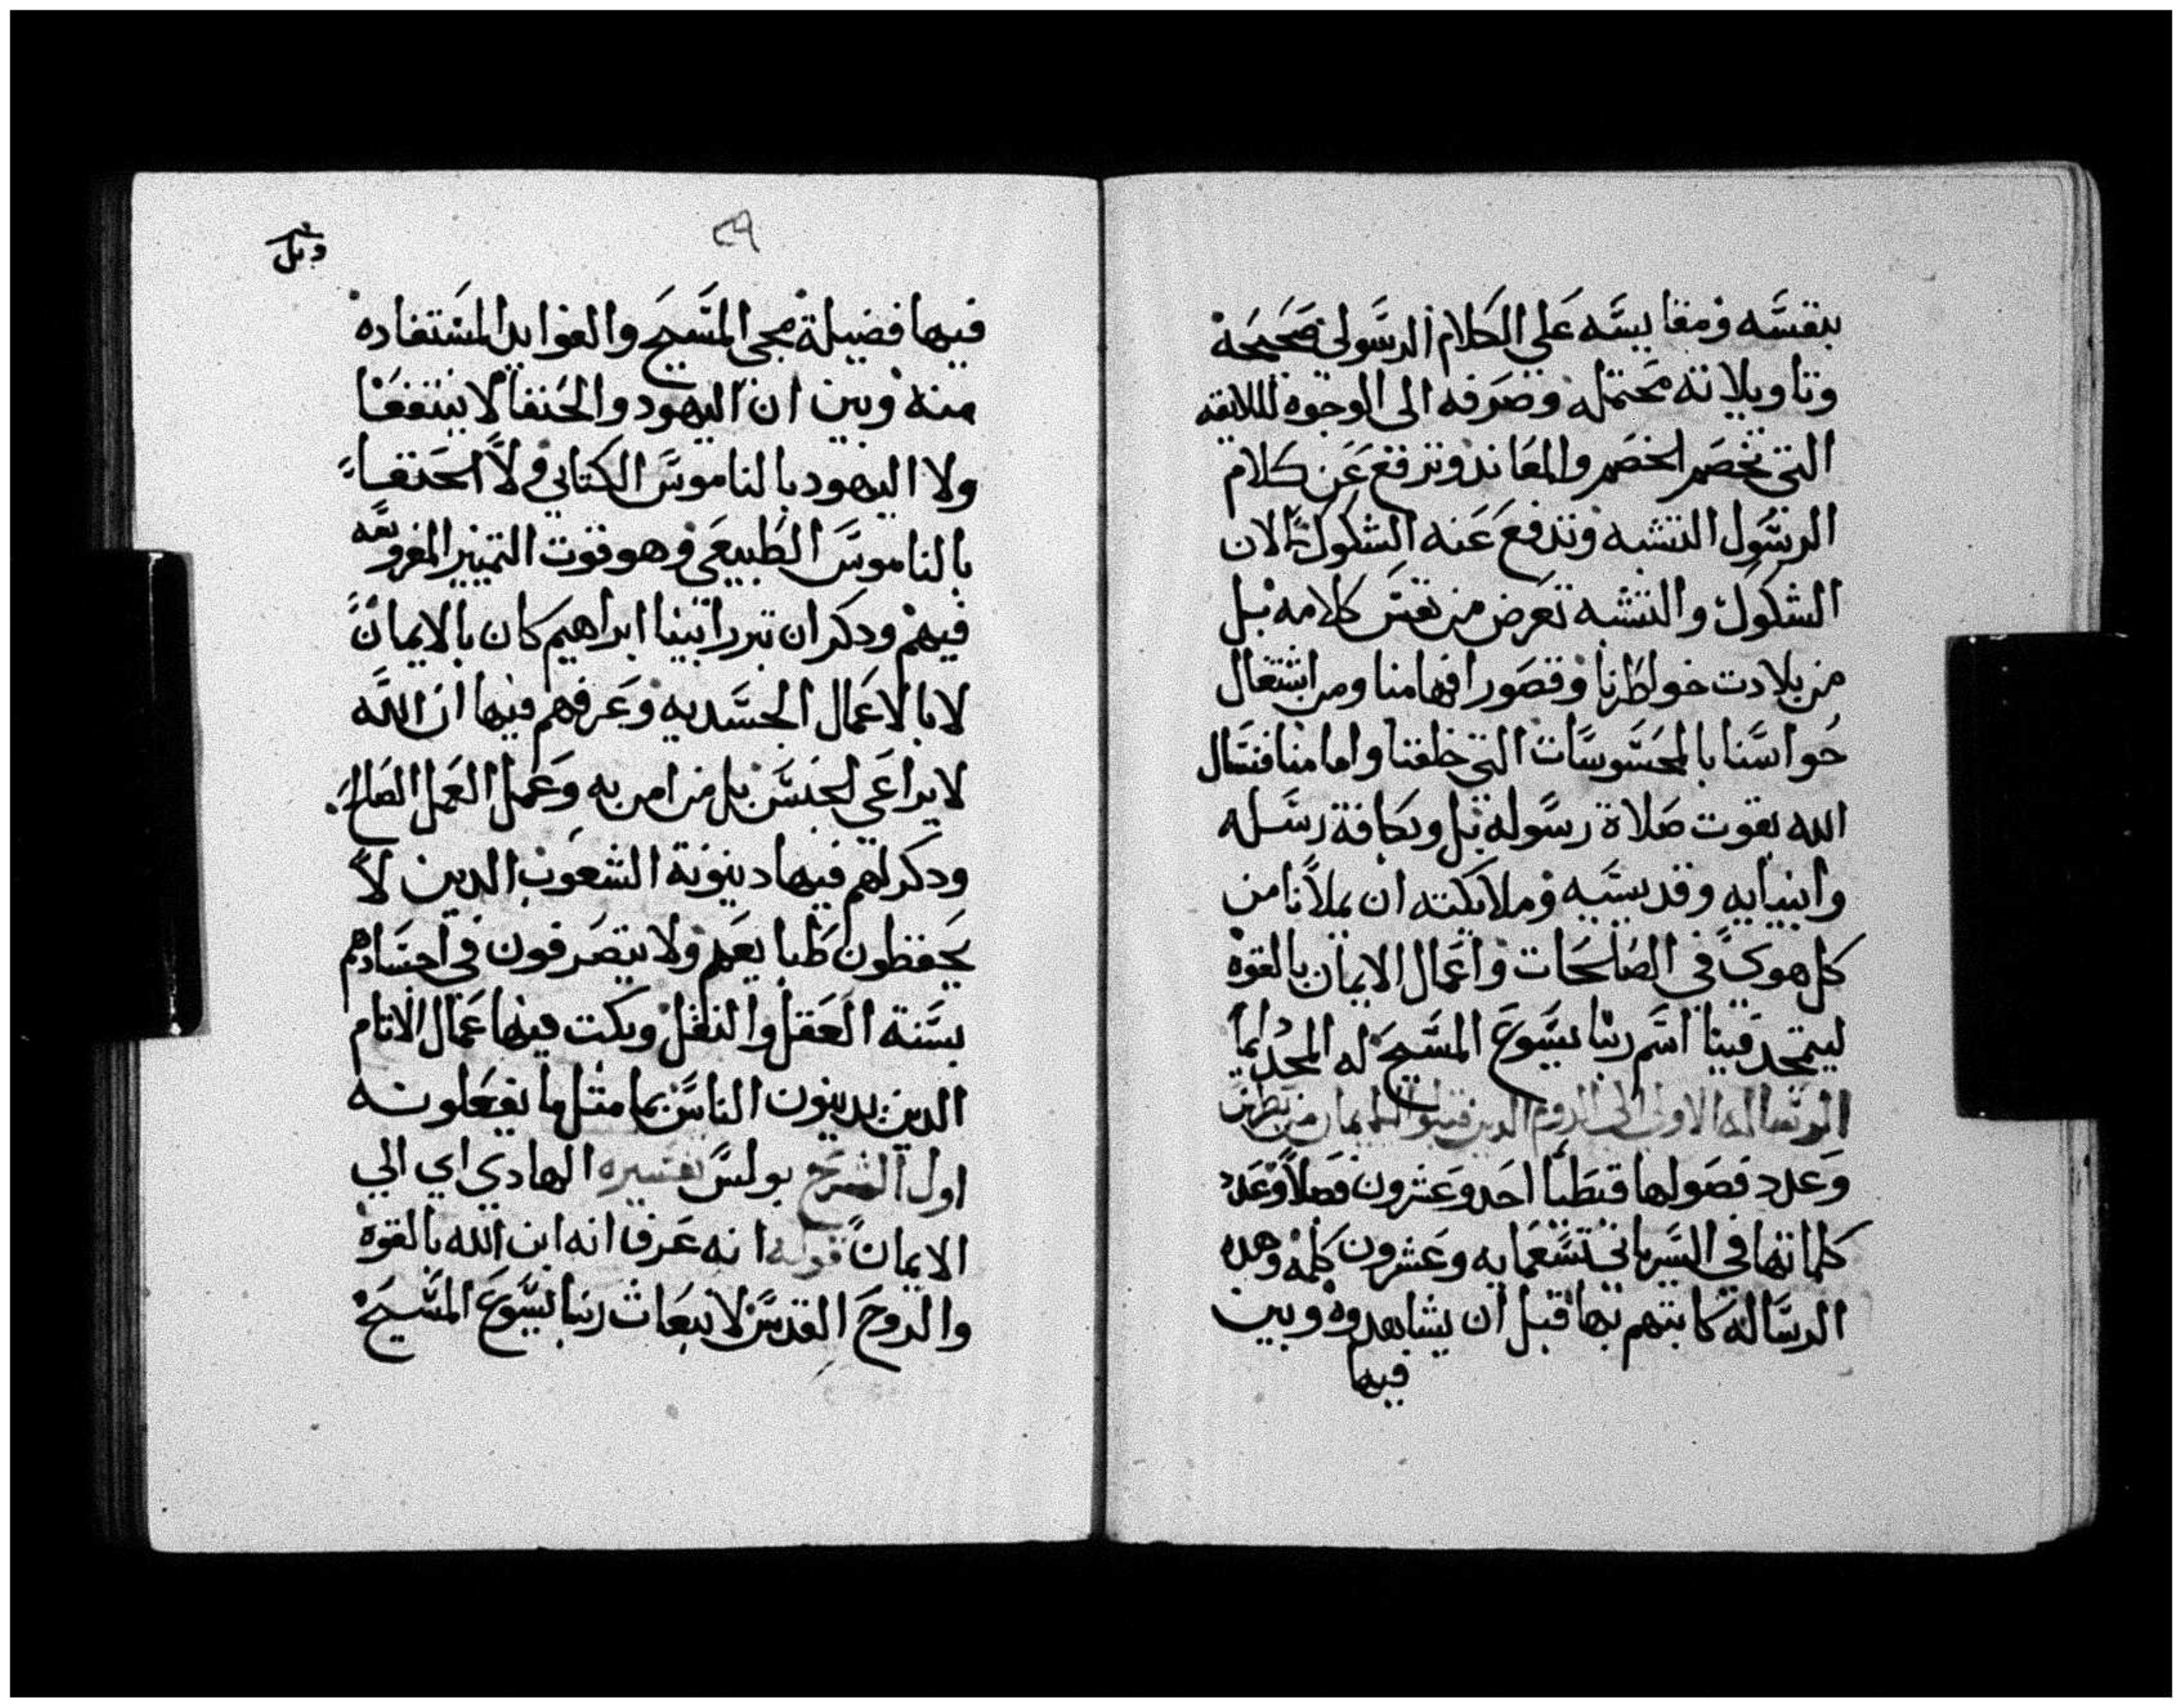 بنفسه ومقاييسه علي الكلام الرسولي صحيحة
وتاويلاته محتمله وصرفه الى الوجوه اللايقه
التي تخصر الخصم والمعاند وترفع عن كلام
الرسول التشبه وتدفع عنه الشكوك لان
الشكوك والتشبه تعرض من نفس كلامه بل
من بلادت خواطرنا وقصور افهامنا ومن اشتغال
حواسنا بالمحسوسات التي خلقنا واما منا فنسال
الله بقوت صلاة رسوله بل وبكافة رسله
وانبيايه وقديسيه وملايكته ان يملانا من
كل هوى في الصالحات واعمال الايمان بالقوه
ليتمجد فينا اسم ربنا يسوع المسيح له المجد دايما
الرساله الاولى الى الروم الذين قبلوا الايمان من بطرس
وعدد فصولها قبطيا احد وعشرون فصلا وعدد
كلماتها في السرياني تسعمايه وعشرون كلمه وهده
الرساله كاتبهم بها قبل ان يشاهدوه وبين
فيها
٢٩
فيها فضيلة مجي المسيح والفوايد المستفاده
منه وبين ان اليهود والحنفا لا ينتفعا
ولا اليهود بالناموس الكتابي ولا الحنفا
بالناموس الطبيعي وهو قوت التمييز المغروسه
فيهم ودكر ان تبرر ابينا ابراهيم كان بالايمان
لا بالاعمال الجسديه وعرفهم فيها ان الله
لا يراعي لجنس بل من امن به وعمل العمل الصالح
ودكر لهم فيها دينونة الشعوب الدين لا
يحفظون طبايعهم ولا يتصرفون في اجسادهم
بسنة العقل والنقل وبكت فيها عمال الاتام
الدين يدينون الناس بما مثل ما يفعلونه
اول الشرح بولس تفسيره الهادي اي الي
الايمان قوله انه عرفا انه ابن الله بالقوه
والروح القدس لانبعاث ربنا يسوع المسيح